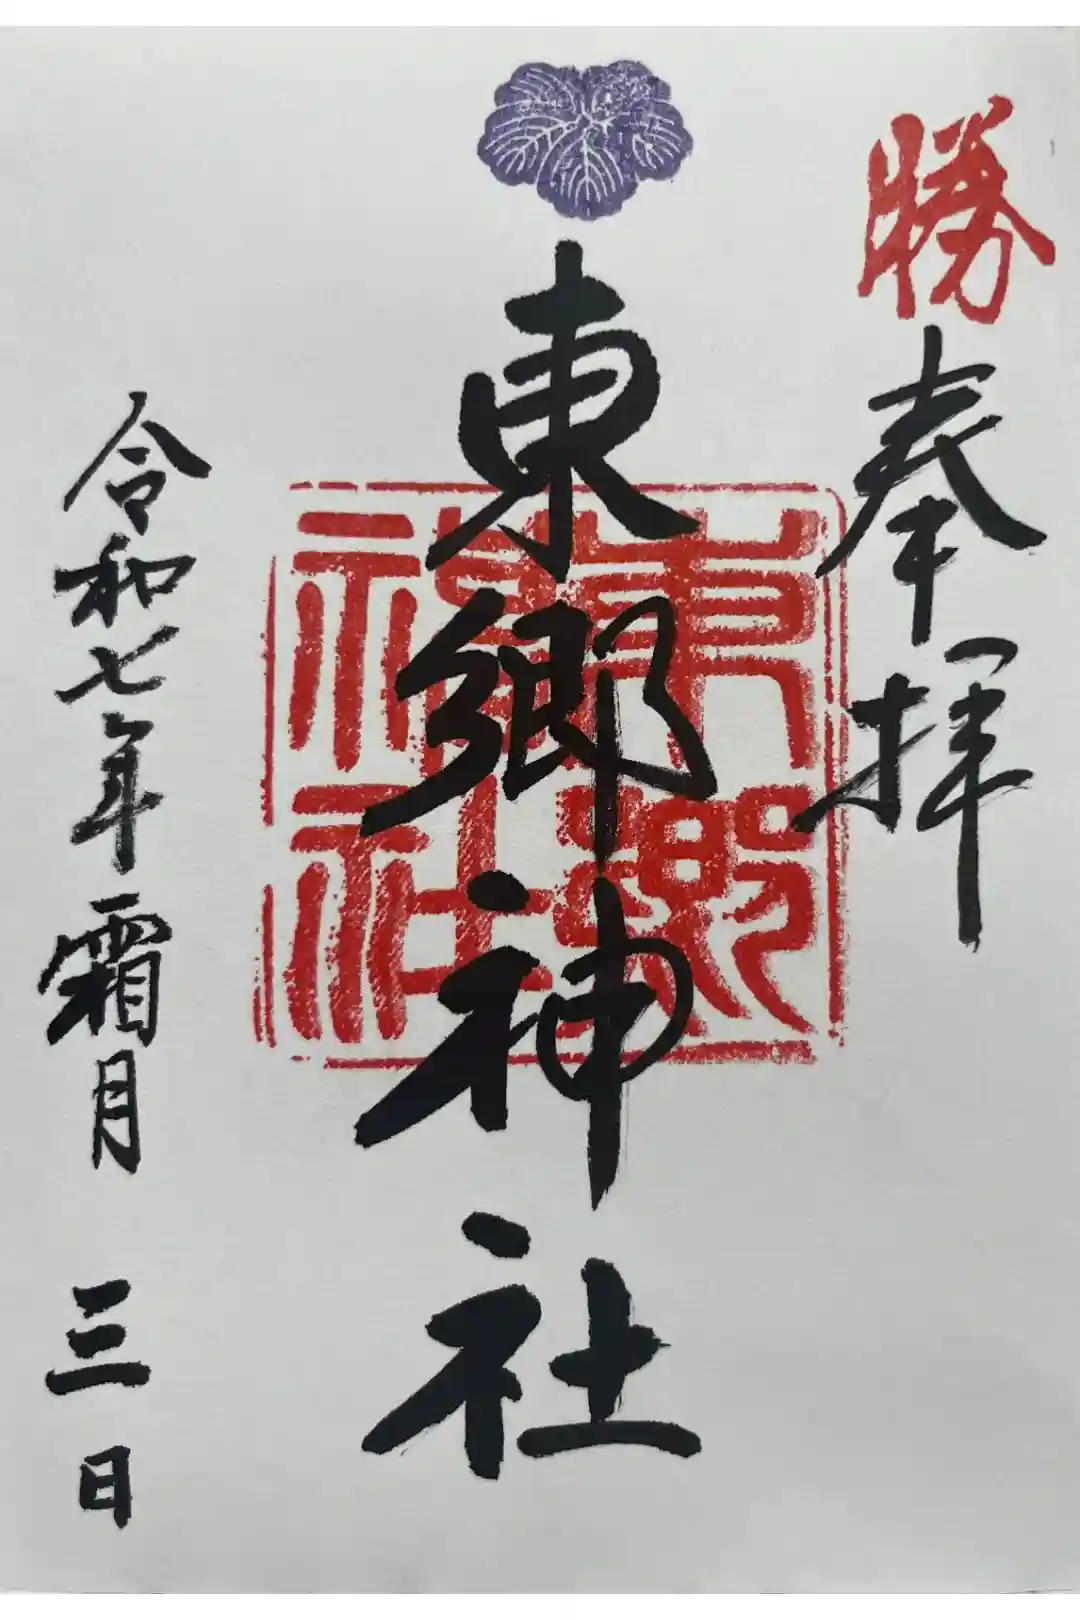 勝
奉拝
東郷神社
東郷
神社
令和七年霜月三日